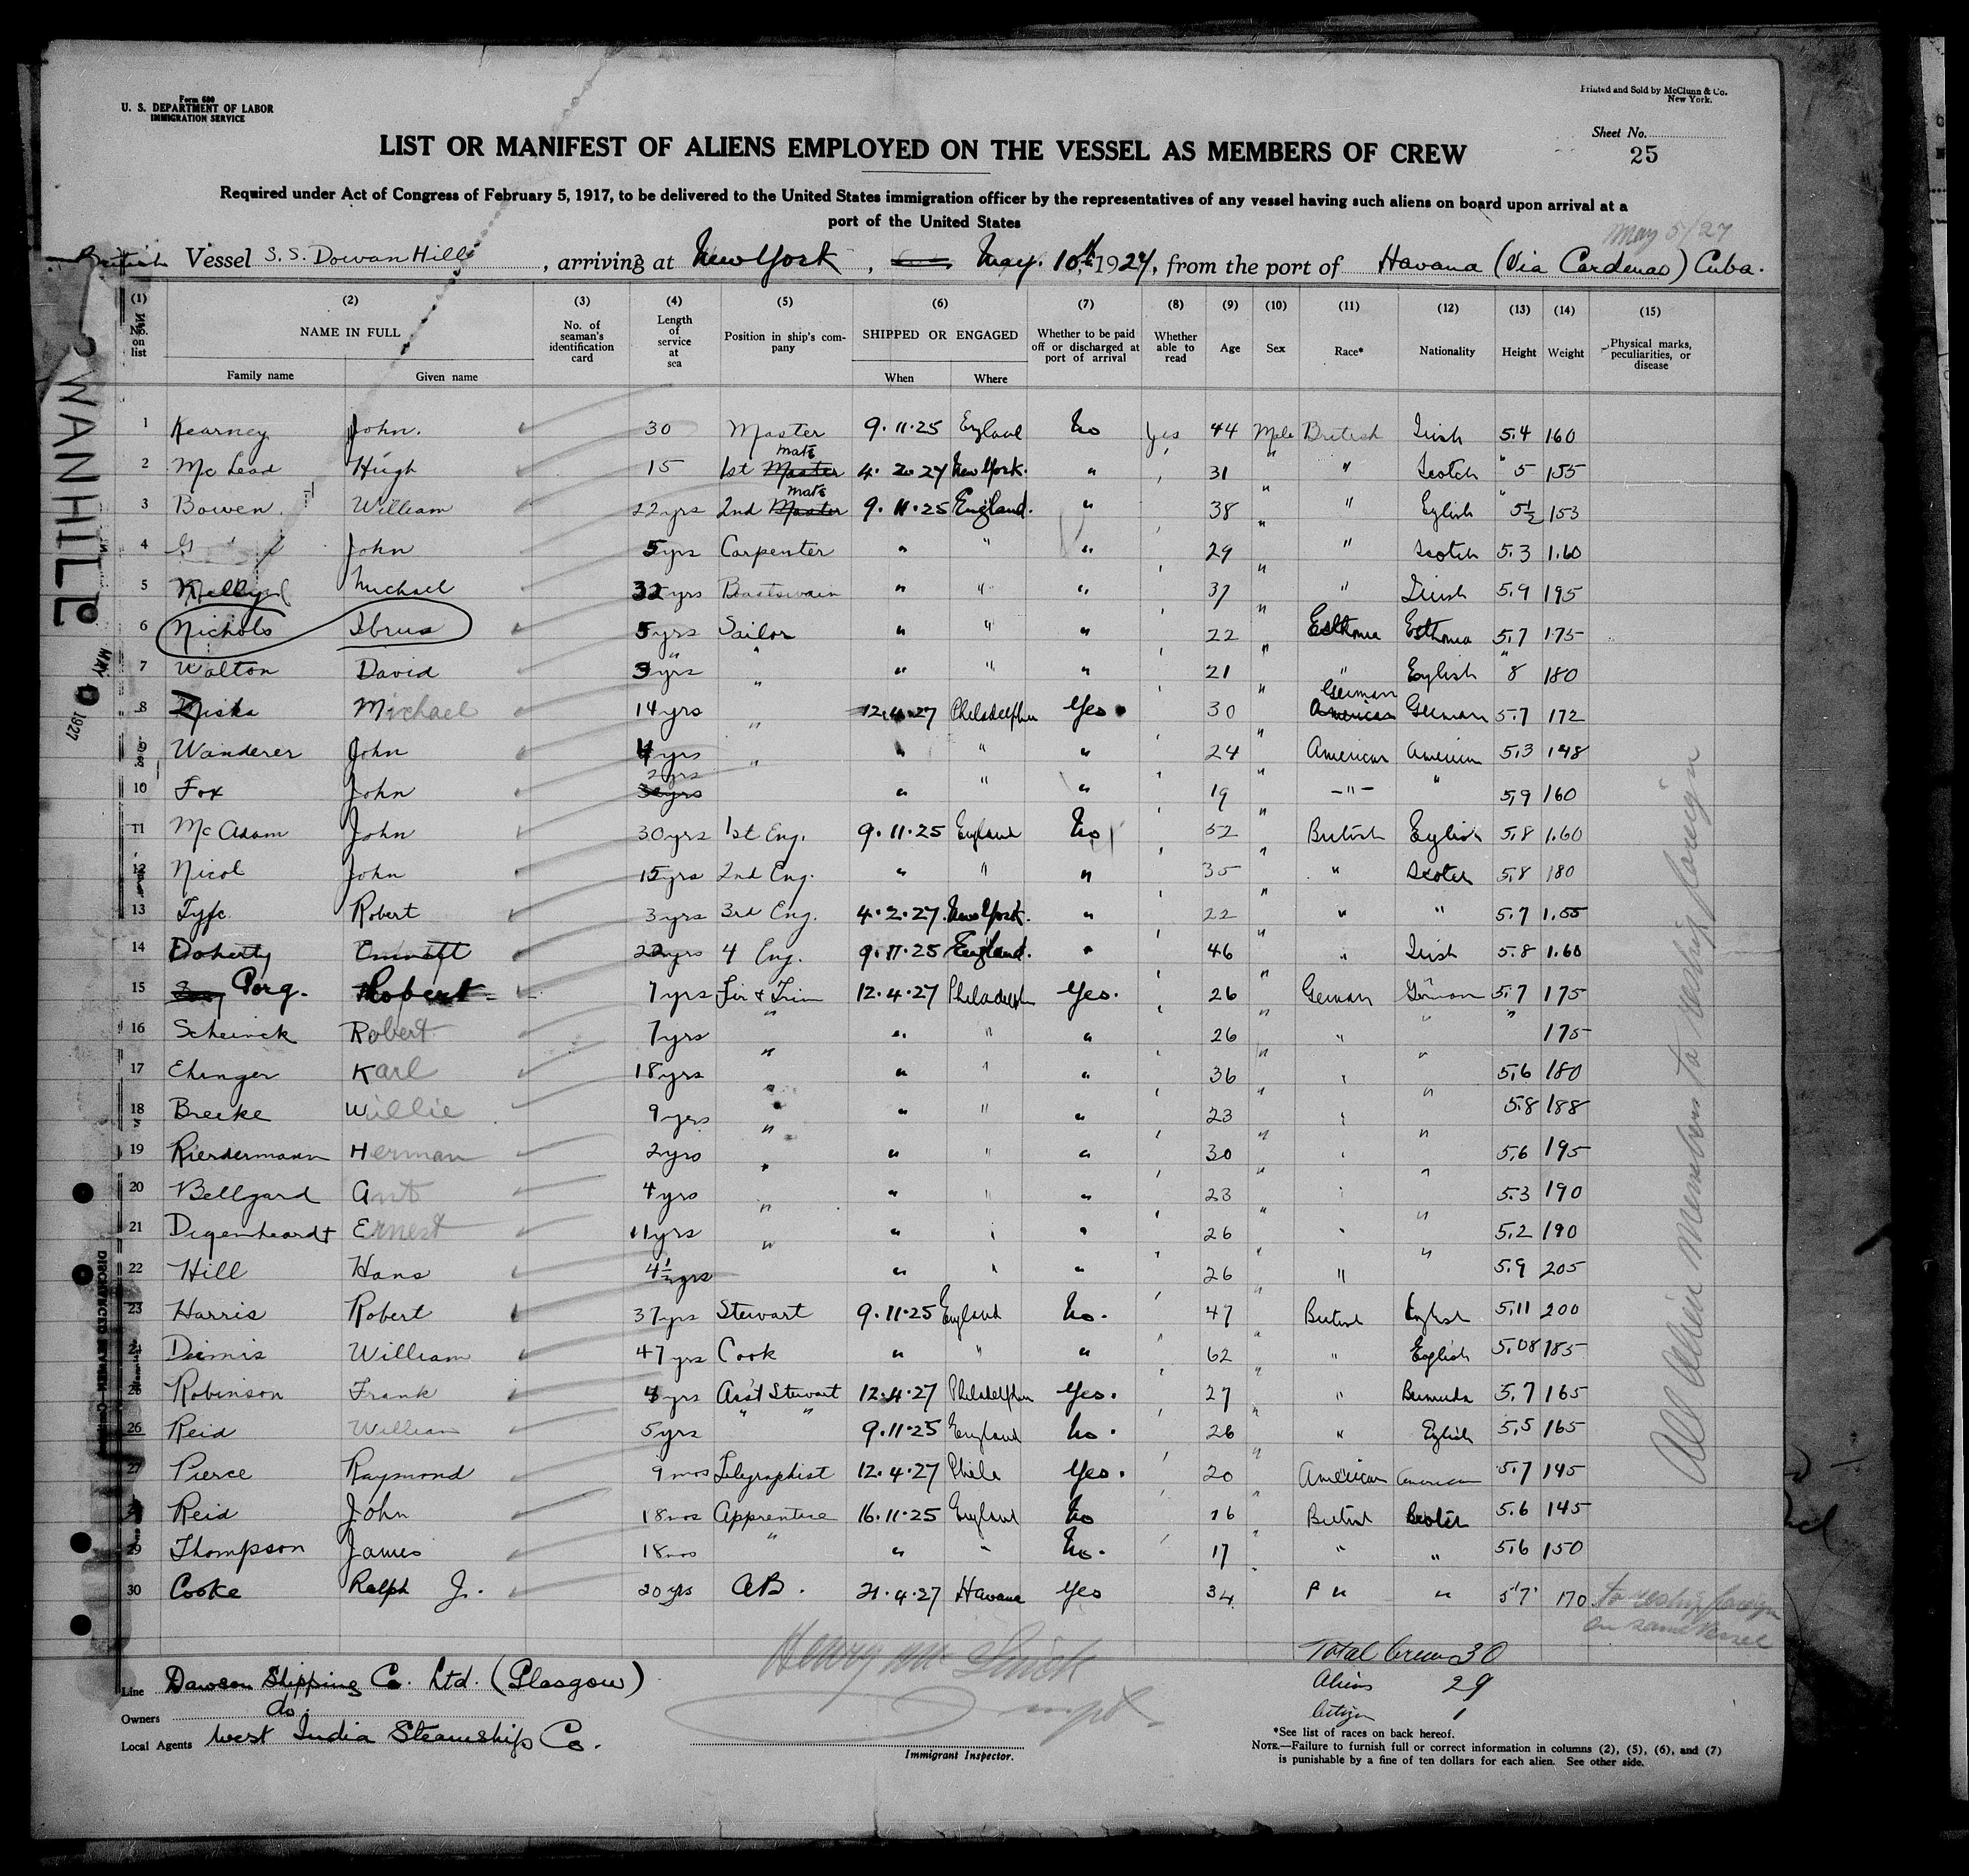 Form 680
U. S. DEPARTMENT OF LABOR
IMMIGRATION SERVICE
Printed and Sold by McClunn & Co.
New York.
Sheet No.
25
LIST OR MANIFEST OF ALIENS EMPLOYED ON THE VESSEL AS MEMBERS OF CREW
Required under Act of Congress of February 5, 1917, to be delivered to the United States immigration officer by the representatives of any vessel having such aliens on board upon arrival at a
port of the United States
May 5/27
British Vessel S.S. Dowan Hill, arriving at New York, May. 10th, 1927, from the port of Havana (Via Cardenas) Cuba.
(1) (2) (3) (4) (5) (6) (7) (8) (9) (10) (11) (12) (13) (14) (15)
No. on list NAME IN FULL No. of seaman's identification card Length of service at sea Position in ship's company SHIPPED OR ENGAGED Whether to be paid off or discharged at port of arrival Whether able to read Age Sex Race* Nationality Height Weight Physical marks, peculiarities, or disease
Family name Given name When Where
1 Kearney John. 30 Master 9.11.25 England No Yes 44 Male British Irish 5.4 160
2 Mc Lead Hugh 15 1st Master mate 4.2.27 New York. " 31 " " Scotch " 5 155
3 Bowen William 22yrs 2nd Master mate 9.11.25 England. " 38 " " English " 5½ 153
4 John 5yrs Carpenter " " " 29 " " Scotch 5.3 1.60
5 Michael 32yrs Boatswain " " " 37 " " Irish 5.9 195
6 Nichols Ibrus 5yrs Sailor " " " 22 " Esthonia Esthonia 5.7 175
7 Walton David 3yrs " " " " 21 " " English " 8 180
8 Michael 14yrs " 12.4.27 Philadelphia Yes 30 " American German German 5.7 172
9 Wanderer John 4yrs " " " " 24 " American American 5.3 148
10 Fox John 2yrs " " " 19 " " " 5,9 160
11 McAdam John 30yrs 1st Eng. 9.11.25 England No 52 " British English 5.8 1.60
12 Nicol John 15yrs 2nd Eng. " " " 35 " " Scotch 5.8 180
13 Fyfe Robert 3yrs 3rd Eng. 4.2.27. New York. " 22 " " " 5.7 1.55
14 Doherty 22yrs 4 Eng. 9.11.25 England. " 46 " " Irish 5.8 1.60
15 Porg. Robert 7yrs Fir & Trim 12.4.27 Philadelph Yes. 26 " German German 5.7 175
16 Scheinck Robert 7yrs " " " " 26 " " " " 175
17 Ehinger Karl 18yrs " " " " 36 " " " 5,6 180
18 Breeke Willie 9yrs " " " " 23 " " " 5.8 188
19 Rierdermann Herman 2yrs " " " " 30 " " " 5,6 195
20 Bellgard Ant 4yrs " " " " 23 " " " 5.3 190
21 Digenheardt Ernest 11yrs " " " " 26 " " " 5.2 190
22 Hill Hans 4½yrs " " " " 26 " " " 5.9 205
23 Harris Robert 37yrs Stewart 9.11.25 England No. 47 " British English 5,11 200
24 William 47yrs Cook " " " 62 " " English 5.08 185
25 Robinson Frank 4yrs Ass't Stewart 12.4.27 Philadelphia Yes. 27 " " Bermuda 5.7 165
26 Reid William 5yrs " " 9.11.25 England No. 26 " " English 5,5 165
27 Pierce Raymond 9 mos Telegraphist 12.4.27 Phila Yes. 20 " American American 5.7 145
28 Reid John 18mos Apprentice 16.11.25 England No 16 " British Scotch 5.6 145
29 Thompson James 18mos " " " No. 17 " " " 5.6 150
30 Cooke Ralph J. 20 yrs AB. 21.4.27 Havana Yes 34 " " " 5'7" 170 to reship foreign
on same vessel
All alien members to reship foreign
Total Crew 30
Aliens 29
Citizen 1
Line Dawson Shipping Co. Ltd. (Glasgow)
Owners do.
Local Agents West India Steamship Co.
Immigrant Inspector.
*See list of races on back hereof.
NOTE.—Failure to furnish full or correct information in columns (2), (5), (6), and (7)
is punishable by a fine of ten dollars for each alien. See other side.
OWANHILL
MAY 10 1927